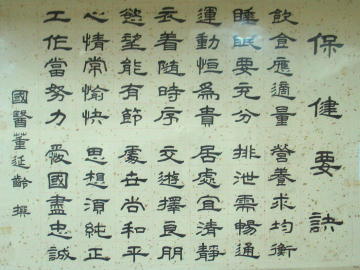 保健要訣
飲食應適量 營養求均衡
睡眠要充分 排泄需暢通
運動恒為貴 居處宜清靜
衣着隨時序 交遊擇良朋
慾望能有節 處世尚和平
心情常愉快 思想須純正
工作當努力 愛國盡忠誠
國醫董延齡 撰